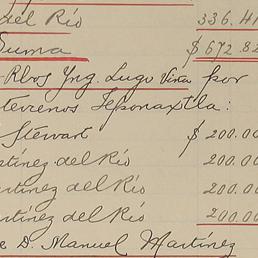 del Río 336.41
Suma $672.82
Rbos Yng. Lugo Viña por
terrenos Teponaxtla:
Stewart $200.00
rtínez del Río 200.00
artínez del Río 200.00
artínez del Río 200.00
e D. Manuel Martínez